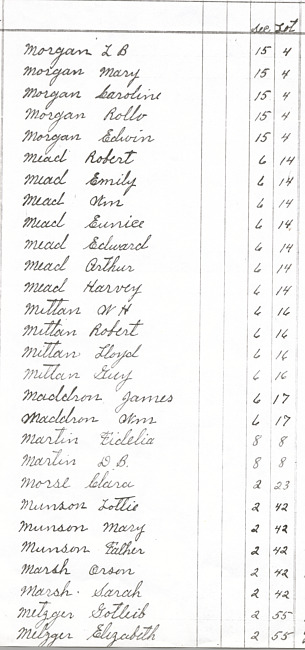 Sec. Lot
Morgan L B 15 4
Morgan Mary 15 4
Morgan Caroline 15 4
Morgan Rollo 15 4
Morgan Edwin 15 4
Mead Robert 6 14
Mead Emily 6 14
Mead Wm 6 14
Mead Eunice 6 14
Mead Edward 6 14
Mead Arthur 6 14
Mead Harvey 6 14
Mittan W H 6 16
Mittan Robert 6 16
Mittan Lloyd 6 16
Mittan Guy 6 16
Maddron James 6 17
Maddron Wm 6 17
Martin Fidelia 8 8
Martin D. B. 8 8
Morse Clara 2 23
Munson Lottie 2 42
Munson Mary 2 42
Munson Father 2 42
Marsh Orson 2 42
Marsh. Sarah 2 42
Metzger Gotleib 2 55
Metzger Elizabeth 2 55